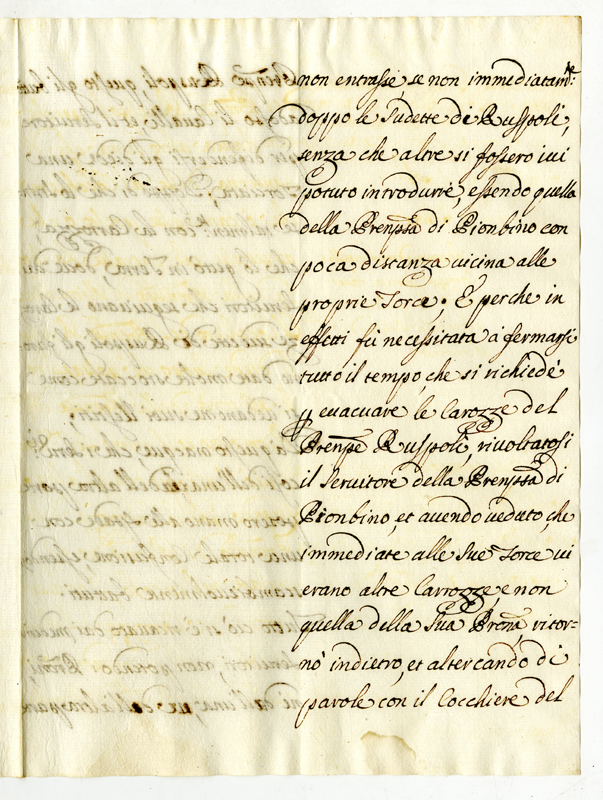 non entrasse, se non immediatam:te
doppo le sudette di Ruspoli,
senza che altre si fossero iui
potuto introdurre, essendo quella
della Prenpssa di Pionbino con
poca distanza uicina alle
proprie Torce. E perche in
effetti fù necessitata à fermarsi
tutto il tempo, che si richiedè
p evacuare le Carozze del
Prenpe Ruspoli, riuoltatosi
il Servitore della Prenpssa di
Pionbino, et auendo ueduto, che
immediate alle sue Torce ui
erano altre Carrozze, e non
quella della sua Prona, ritor-
nò indietro, et altercando di
parole con il Cocchiere del